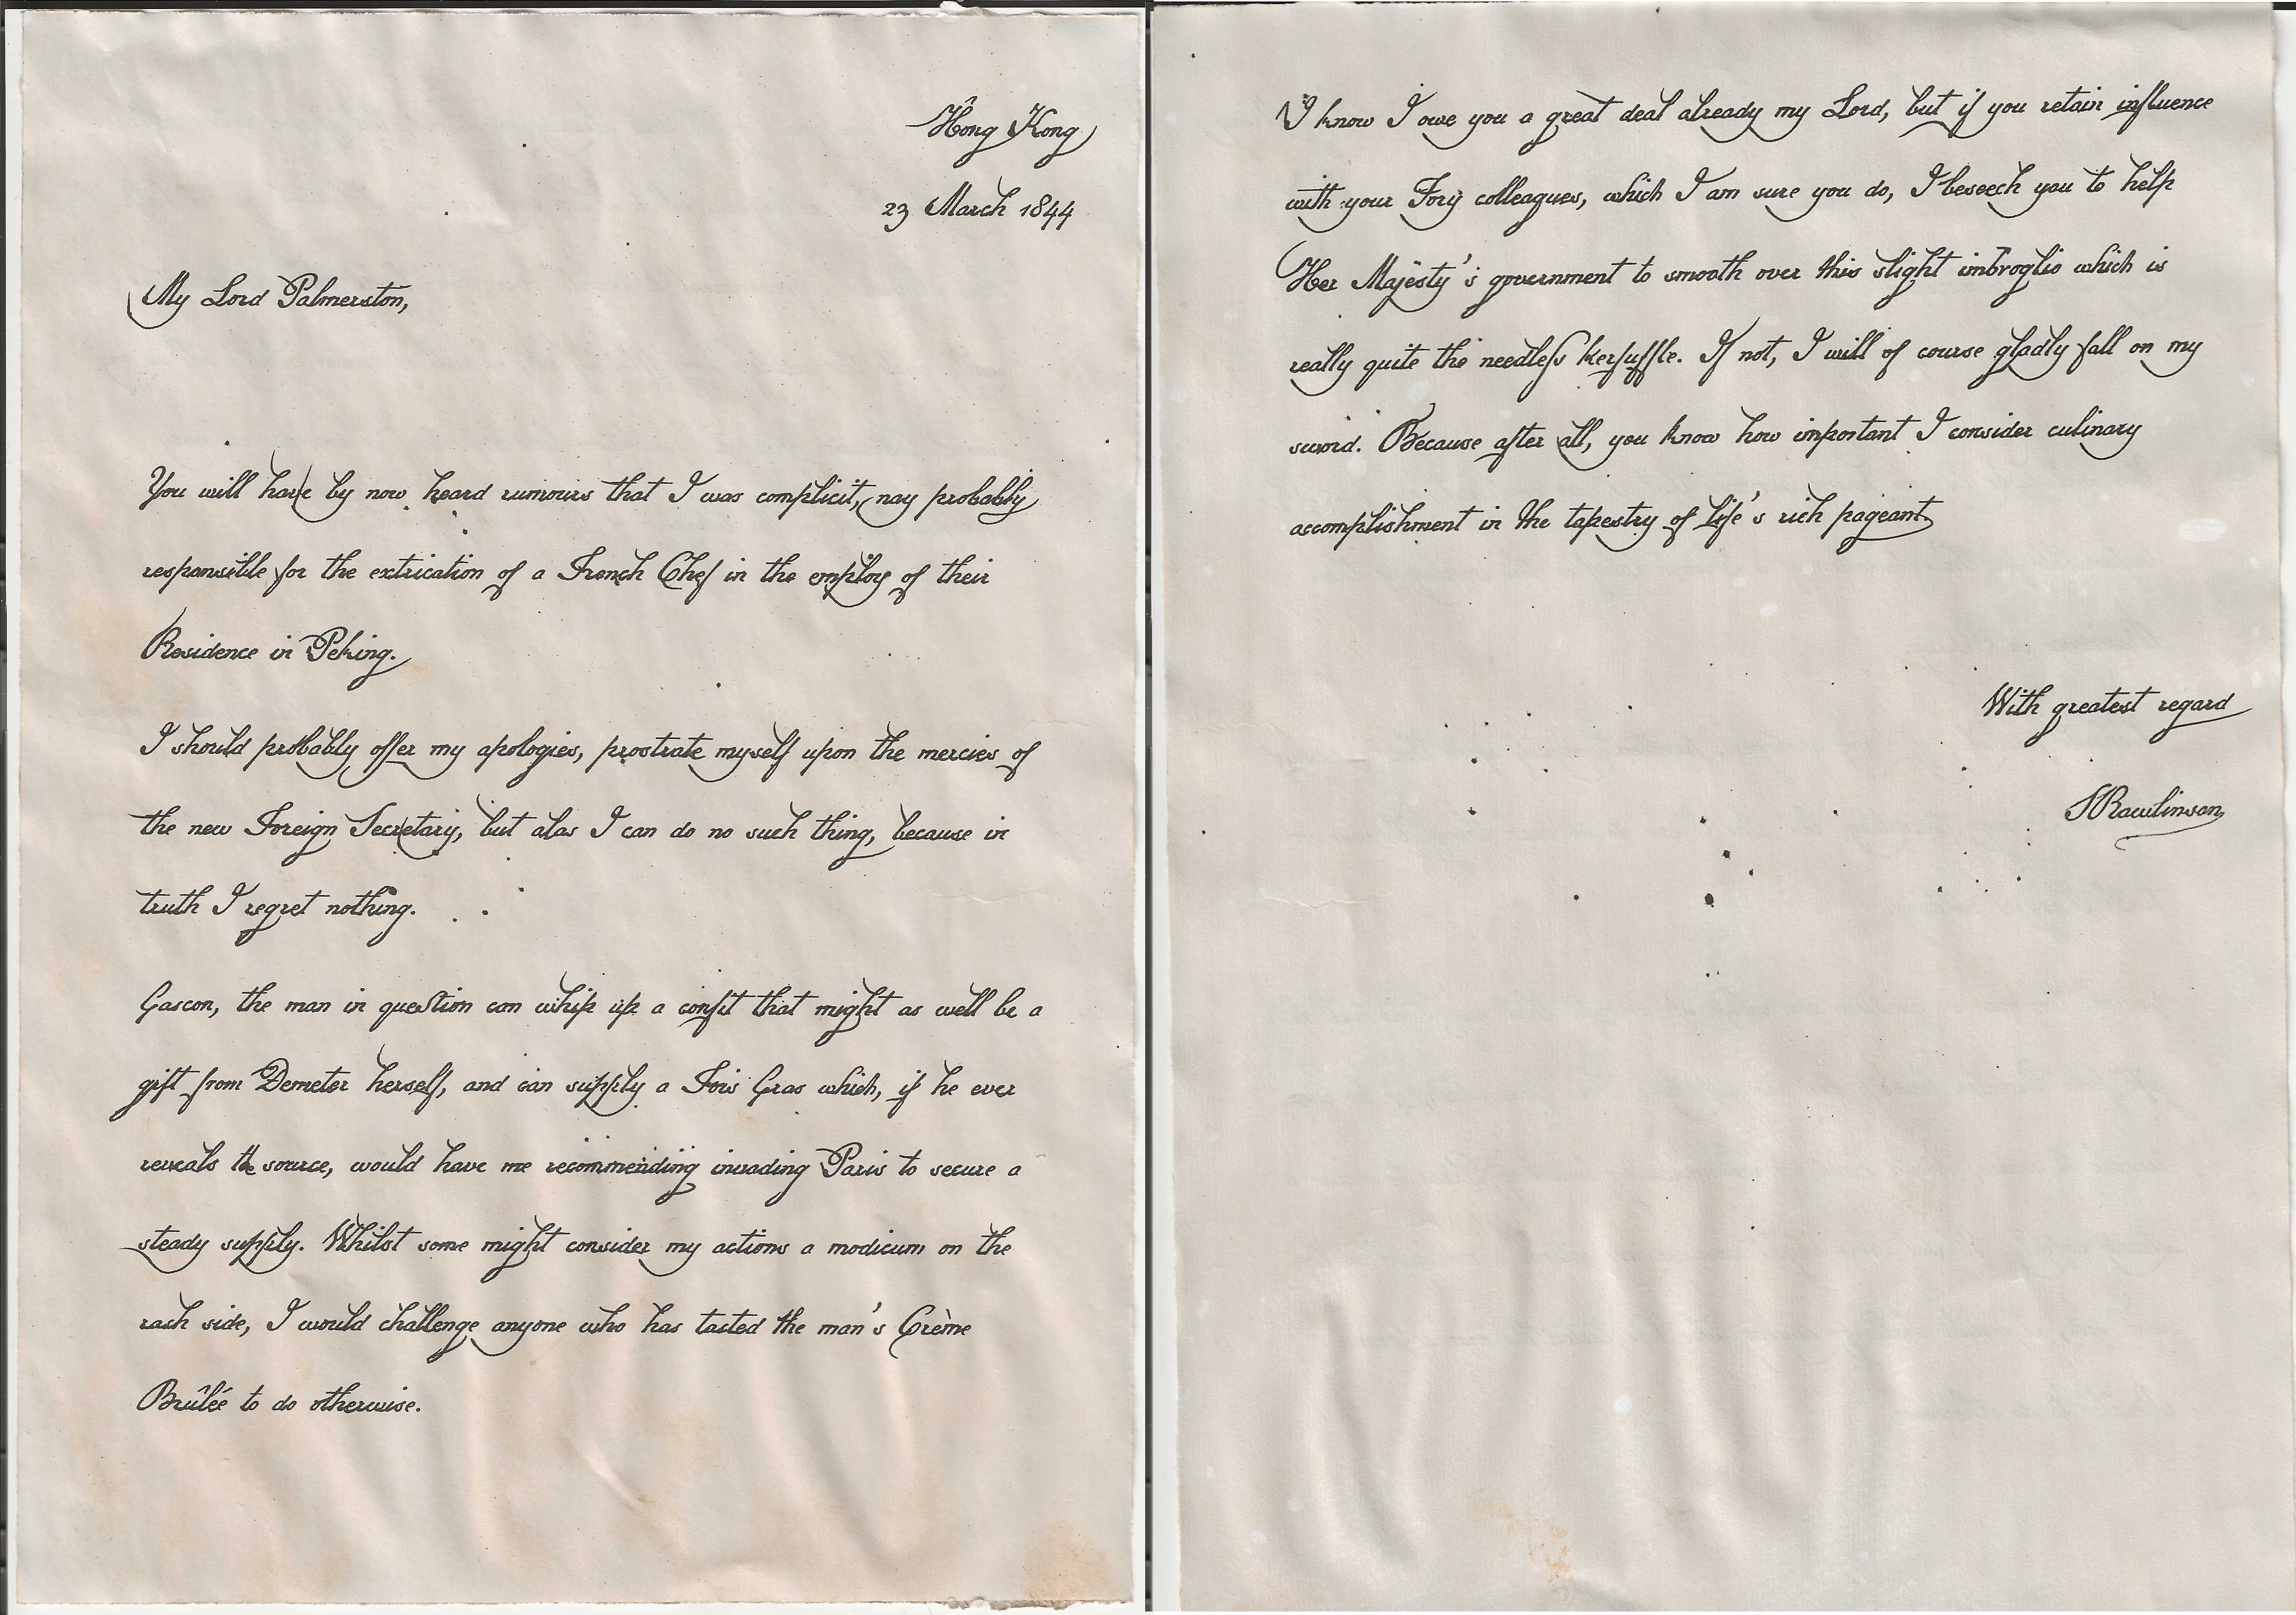 Hong Kong
23 March 1844
My Lord Palmerston,
You will have by now heard rumours that I was complicit, nay probably
responsible for the extrication of a French Chef in the employ of their
Residence in Peking.
I should probably offer my apologies, prostrate myself upon the mercies of
the new Foreign Secretary, but alas I can do no such thing, because in
truth I regret nothing.
Gascon, the man in question can whip up a confit that might as well be a
gift from Demeter herself, and can supply a Fois Gras which, if he ever
reveals the source, would have me recommending invading Paris to secure a
steady supply. Whilst some might consider my actions a modicum on the
rash side, I would challenge anyone who has tasted the man's Crème
Brûlée to do otherwise.
I know I owe you a great deal already my Lord, but if you retain influence
with your Tory colleagues, which I am sure you do, I beseech you to help
Her Majesty's government to smooth over this slight imbroglio which is
really quite the needless kerfuffle. If not, I will of course gladly fall on my
sword. Because after all, you know how important I consider culinary
accomplishment in the tapestry of life's rich pageant
With greatest regard
SRawlinson